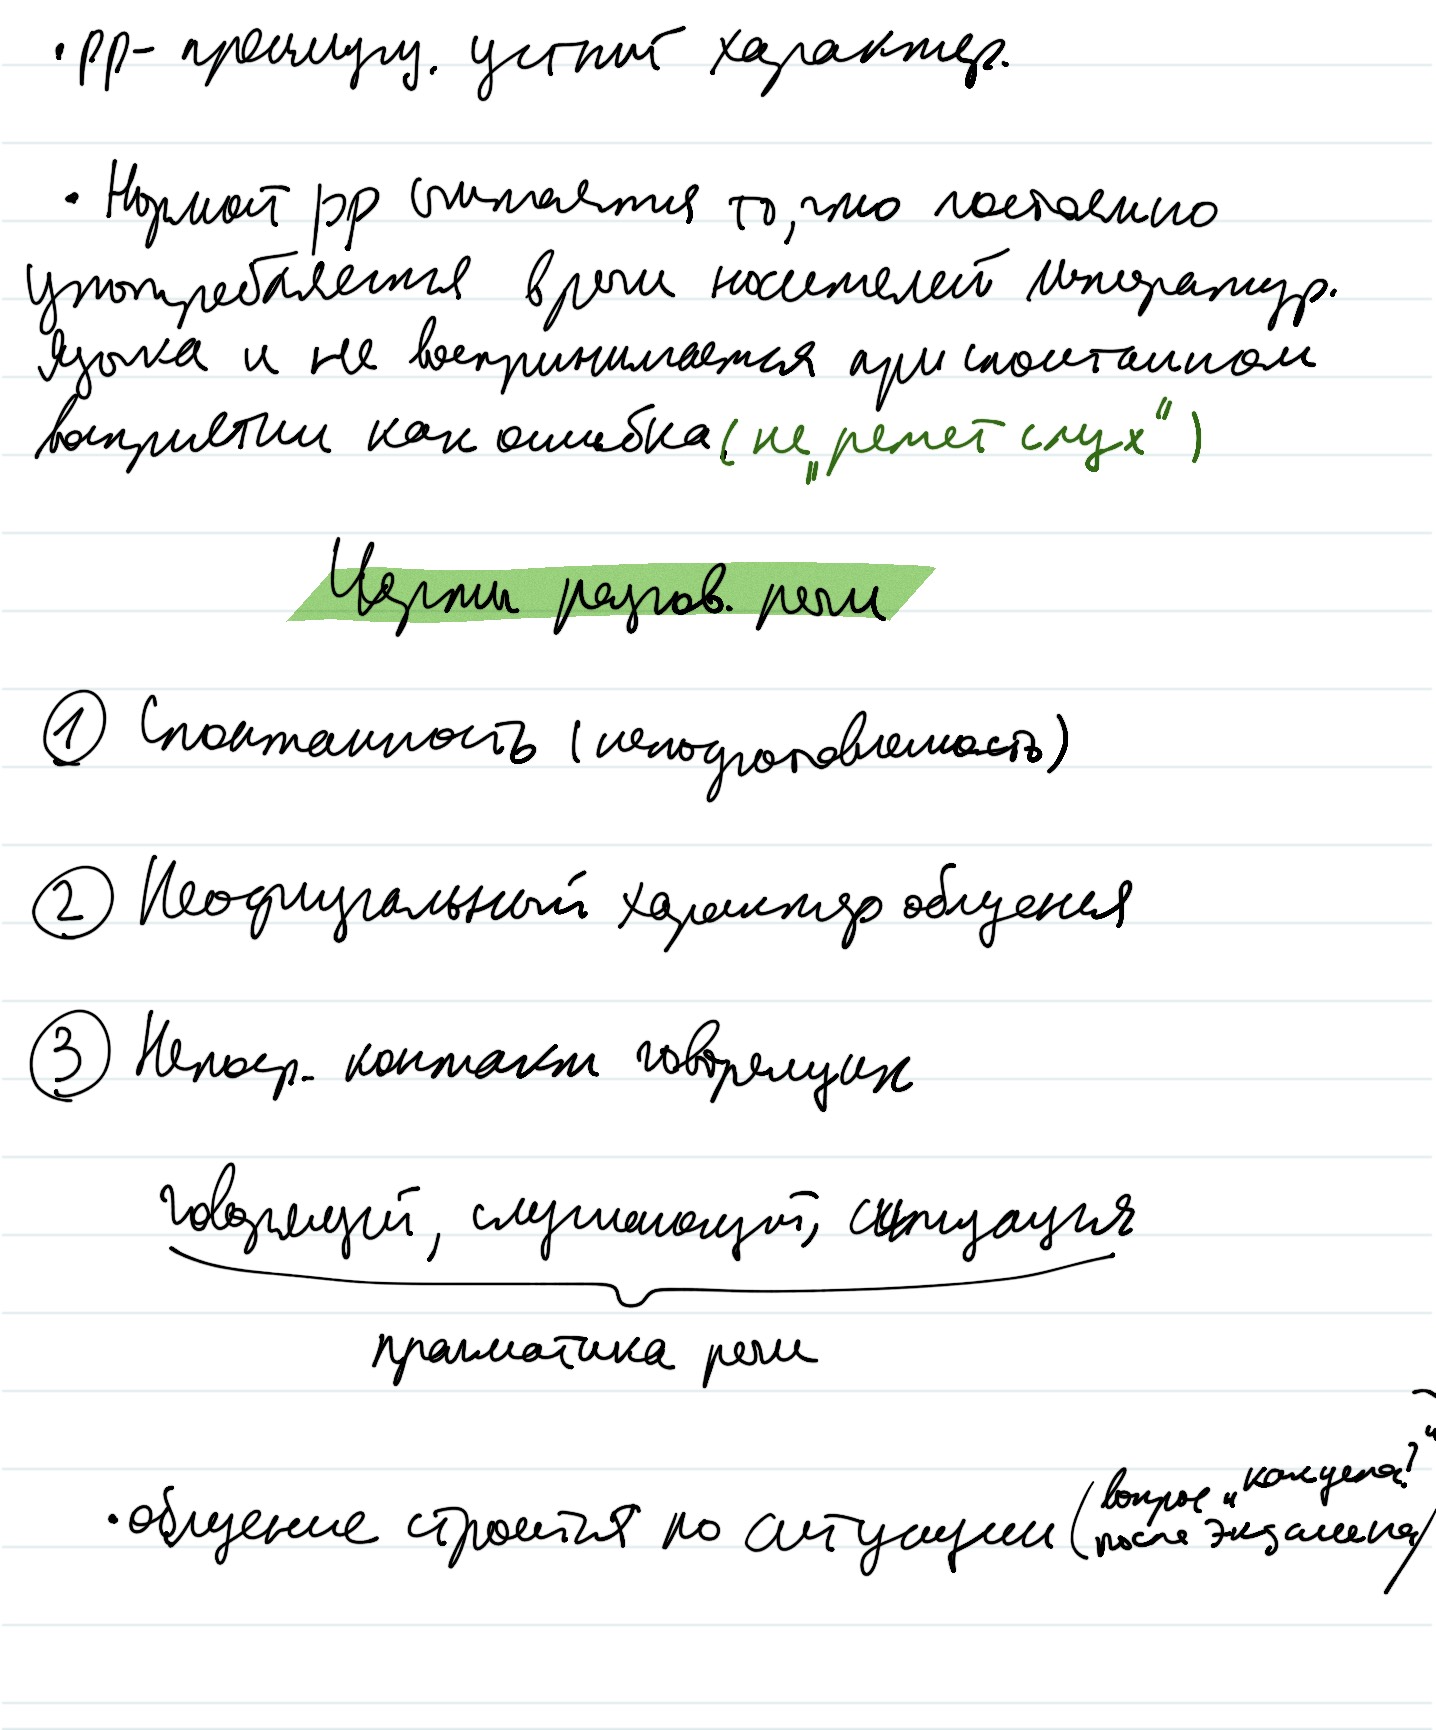 · РР - преимущ. устный характер.
· Нормой РР считается то, что постоянно
употребляется в речи носителей литератур.
языка и не воспринимается при спонтанном
восприятии как ошибка (не „режет слух“)
Черты разгов. речи
① Спонтанность (неподготовленность)
② Неофициальный характер общения
③ Непоср. контакт говорящих
говорящий, слушающий, ситуация
прагматика речи
· общение строится по ситуации (вопрос „какая цена?“
после экзамена)